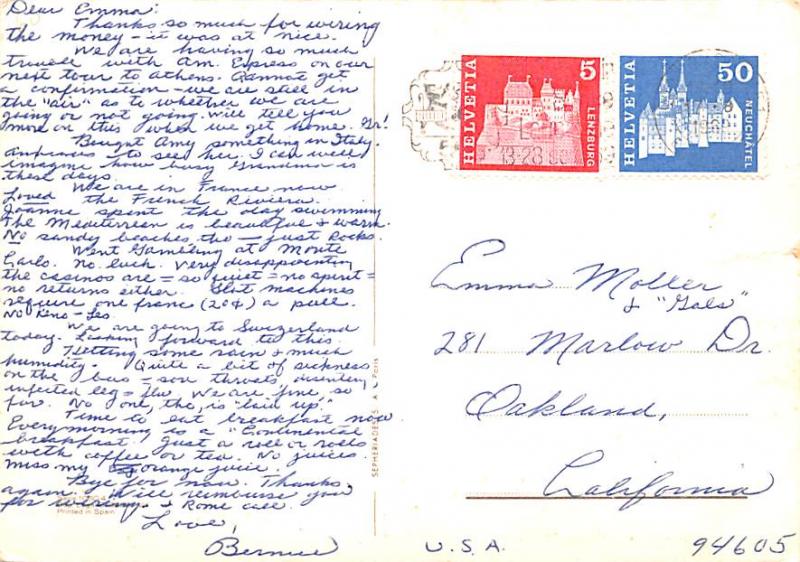 Dear Emma:
Thanks so much for wiring
the money - it was at nice.
We are having so much
trouble with Am. Express on our
next tour to Athens. Cannot get
a confirmation - we are still in
the "air" as to whether we are
going or not going. Will tell you
more on this when we get home. Gr!
Bought Amy something in Italy.
Anxious to see her. I can well
imagine how busy Grandma is
these days.
We are in France now
Loved the French Riviera.
Joanne spent the day swimming
The Mediterrean is beautiful & warm.
No sandy beaches tho - just Rocks.
Went Gambling at Monte
Carlo. No luck. Very disappointing
the casinos are = so quiet = no spirit =
no returns either. Slot machines
require one franc (20¢) a pull.
No Keno -
We are going to Switzerland
today. Looking forward to this.
Hitting some rain & much
humidity. Quite a bit of sickness
on the bus = sore throats, disentery
infected leg = flu. We are fine, so
far. No one, tho, is "laid up."
Time to eat breakfast now
Every morning is a "Continental
breakfast. Just a roll or rolls
with coffee or tea. No juices.
miss my orange juice.
Bye for now. Thanks,
again. Will reimburse you
for wiring & Rome call.
Love,
Bernice
Printed in Spain
SEPHERIADES S.A. Paris
HELVETIA 5 LENZBURG
HELVETIA 50 NEUCHÂTEL
Emma Moller
& "Gals"
281 Marlow Dr.
Oakland,
California
U.S.A. 94605